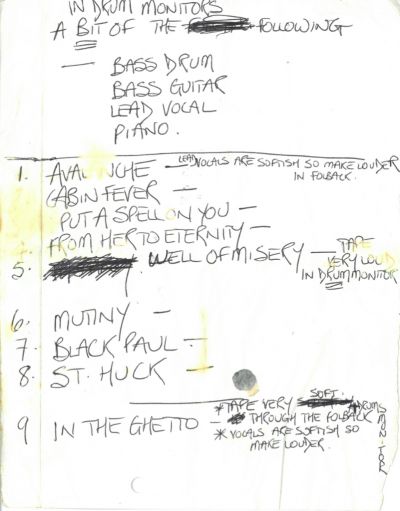 IN DRUM MONITORS
A BIT OF THE FOLLOWING
— BASS DRUM
BASS GUITAR
LEAD VOCAL
PIANO.
1. AVALANCHE — LEAD VOCALS ARE SOFTISH SO MAKE LOUDER
IN FOLBACK.
CABIN FEVER —
PUT A SPELL ON YOU —
FROM HER TO ETERNITY —
5. WELL OF MISERY — TAPE
VERY LOUD
IN DRUM MONITOR
6. MUTINY —
7. BLACK PAUL —
8. ST. HUCK —
9 IN THE GHETTO — * TAPE VERY SOFT.
THROUGH THE FOLBACK
DRUMS MONITOR
* VOCALS ARE SOFTISH SO
MAKE LOUDER.